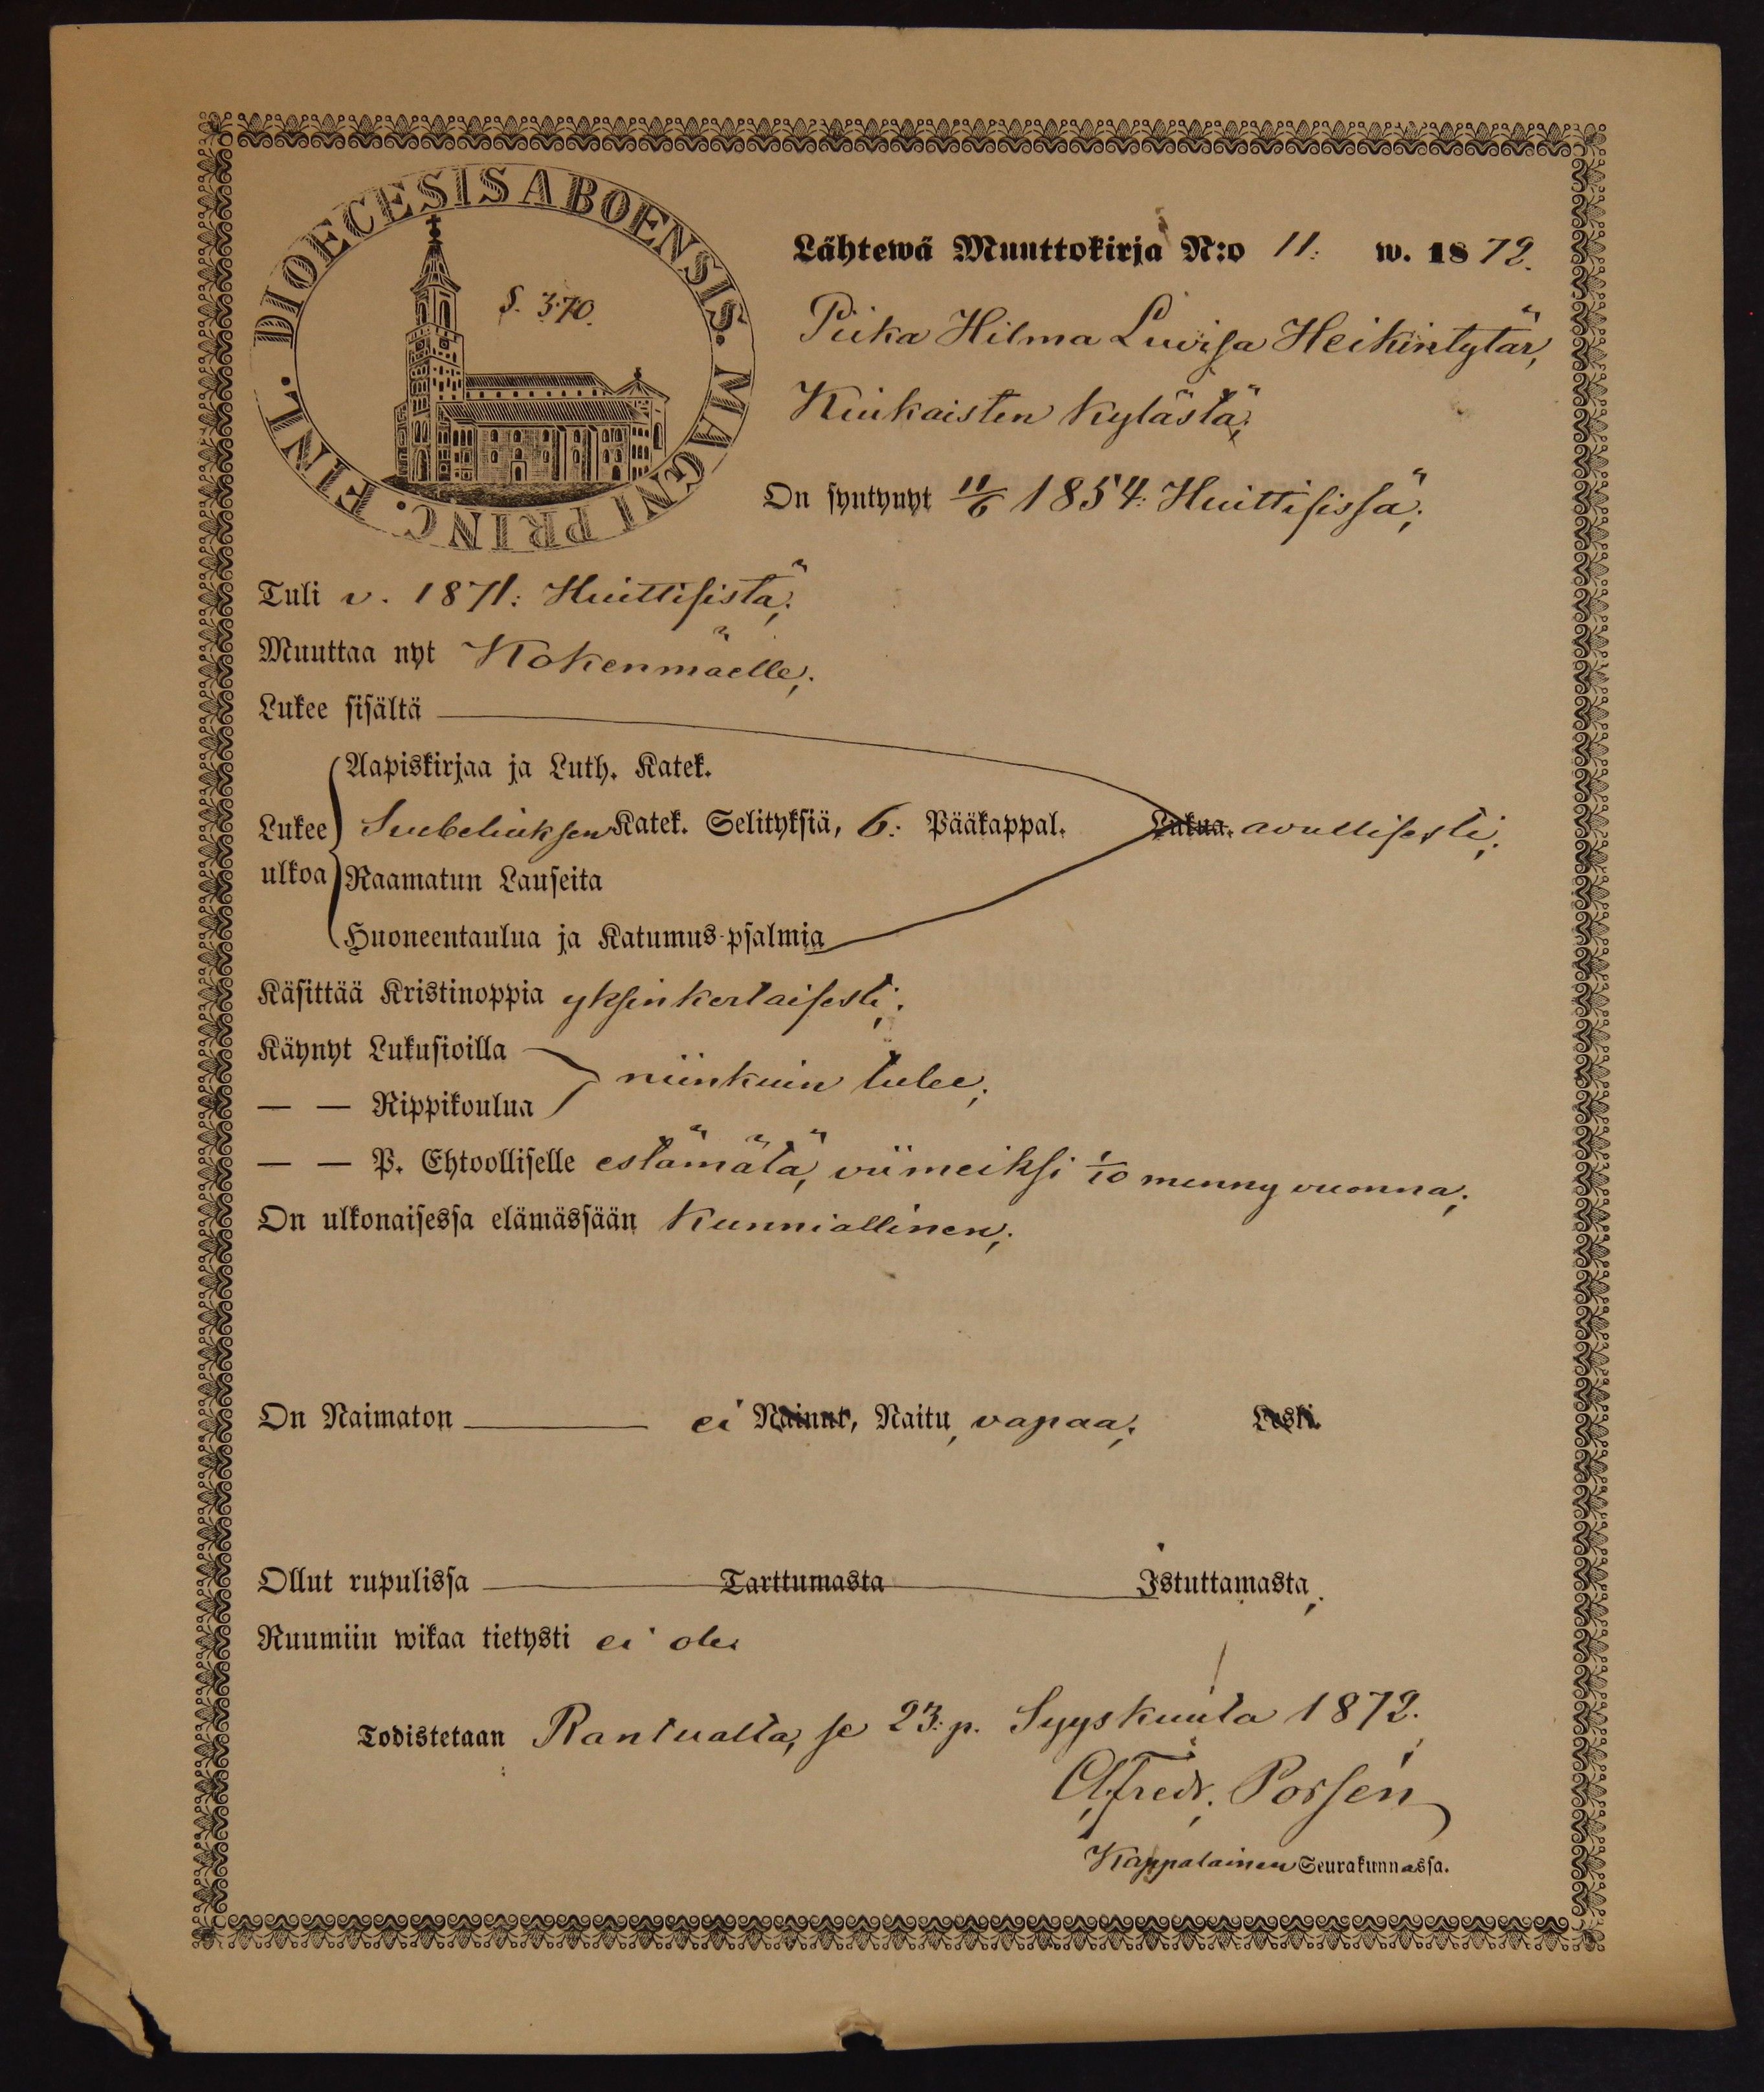 DIOECESIS ABOENSIS. MAGNI PRINC. FINL.
S. 370.
Lähtewä Muuttokirja N:o 11: w. 1872.
Piika Hilma Luvisa Heikintytär,
Kiukaisten kylästä;
On syntynyt 11/6 1854: Huittisissa;
Tuli v. 1871: Huittisista;
Muuttaa nyt Kokenmäelle;
Lukee sisältä
Aapiskirjaa ja Luth. Katek.
Lukee Katek. Selityksiä, 6: Pääkappal. Lukua. avullisesti;
ulkoa Raamatun Lauseita
Huoneentaulua ja Katumus-psalmia
Käsittää Kristinoppia yksinkertaisesti;
Käynyt Lukusioilla
niinkuin tulee;
— — Rippikoulua
— — P. Ehtoolliselle estämätä, viimeiksi 1/10 menny vuonna;
On ulkonaisessa elämässään kunniallinen;
On Naimaton ei Nainut, Naitu, vapaa; Leski.
Ollut rupulissa Tarttumasta Istuttamasta,
Ruumiin wikaa tietysti ei ole.
Todistetaan se 23: p. Syyskuuta 1872.
Alfredr. Porsén
Kappalainen Seurakunnassa.